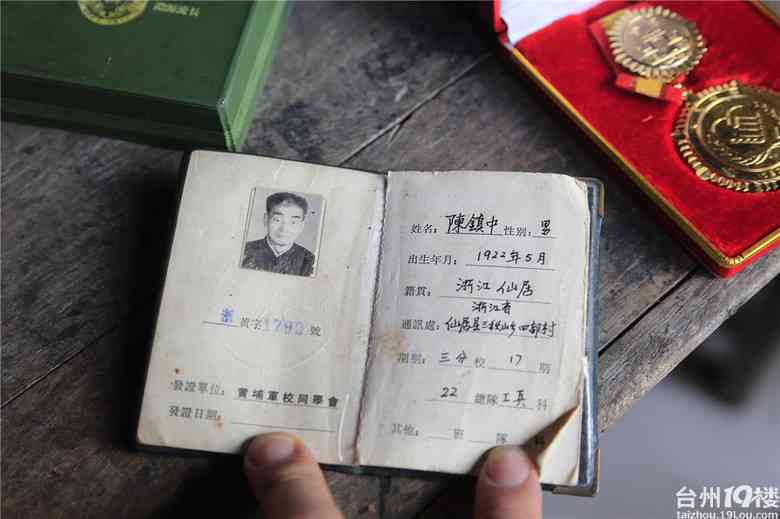 浙 黃字1792號
發證單位：黃埔軍校同學會
發證日期：
姓名：陳鎮中 性別：男
出生年月：1922年5月
籍貫：浙江 仙居
浙江省
通訊處：仙居县三桃山乡四部村
期别：三分校 17期
22 總隊 工兵科
其他： 班 隊 科
台州19楼
taizhou.19Lou.com